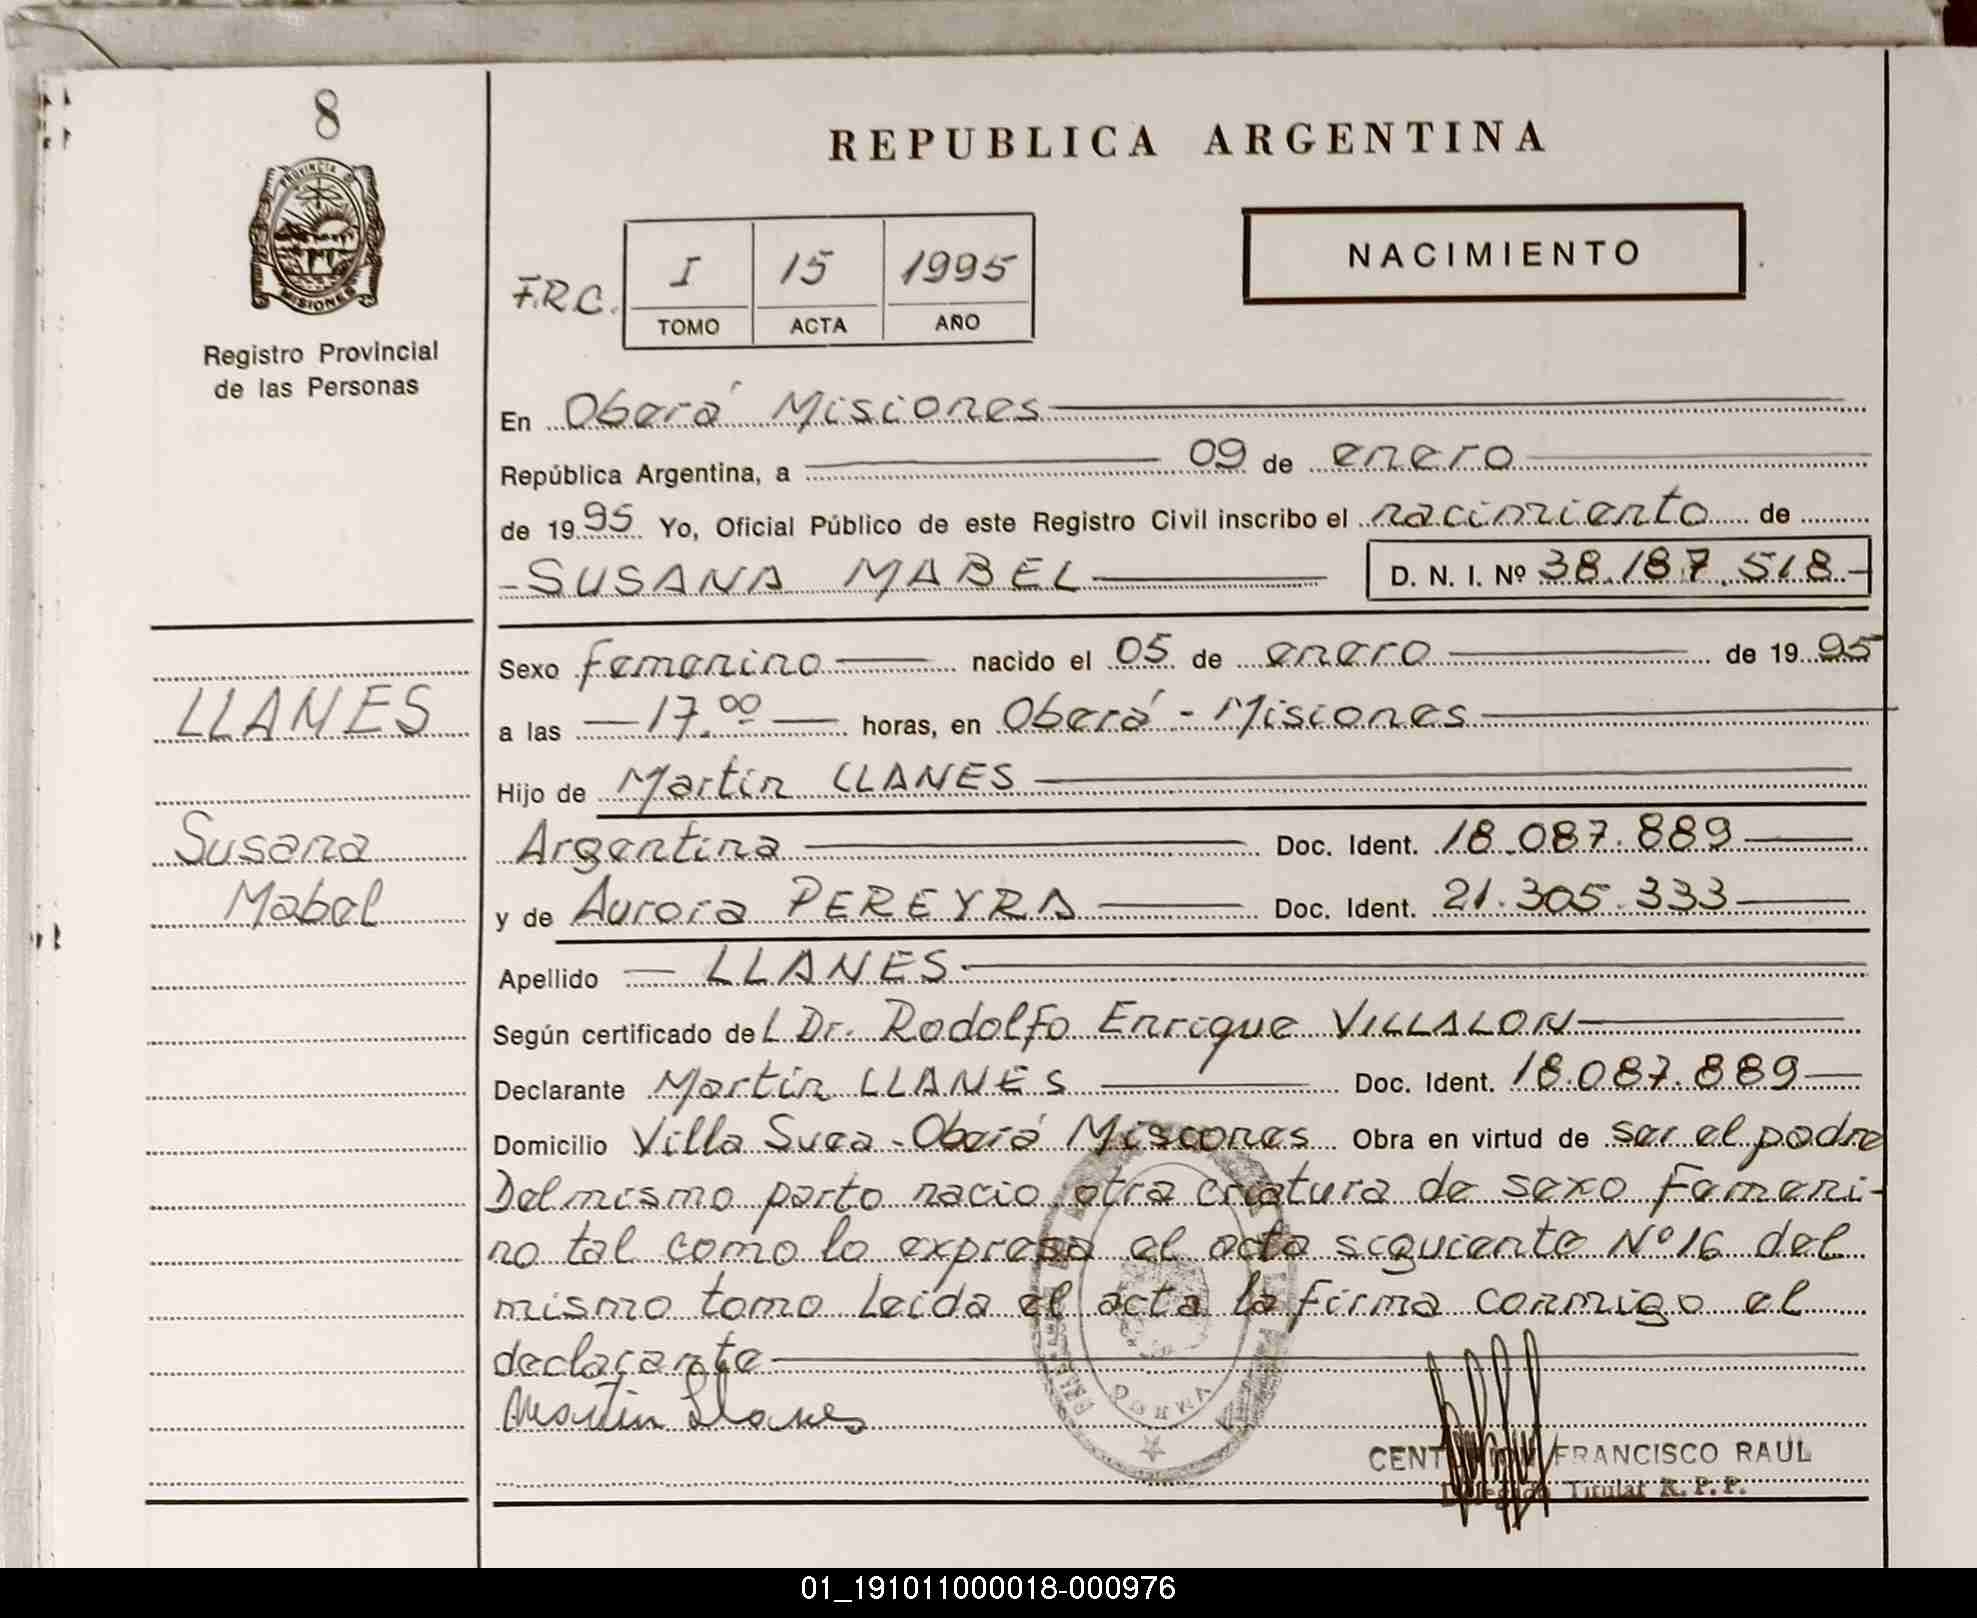 8
REPUBLICA ARGENTINA
PROVINCIA D
MISIONES
Registro Provincial
de las Personas
F.R.C.
I 15 1995
TOMO ACTA AÑO
NACIMIENTO
En Oberá Misiones
República Argentina, a 09 de enero
de 1995 Yo, Oficial Público de este Registro Civil inscribo el nacimiento de
- SUSANA MABEL D. N. I. Nº 38.187.518.-
Sexo femenino nacido el 05 de enero de 1995
LLANES
a las 17.00 horas, en Oberá - Misiones
Hijo de Martín LLANES
Susana
Argentina Doc. Ident. 18.087.889
Mabel
y de Aurora PEREYRA Doc. Ident. 21.305.333
Apellido LLANES
Según certificado del Dr. Rodolfo Enrique VILLALON
Declarante Martín LLANES Doc. Ident. 18.087.889
Domicilio Villa Svea - Oberá Misiones Obra en virtud de ser el padre
Del mismo parto nacio otra criatura de sexo Femeni-
no tal como lo expresa el acta siguiente Nº 16 del
mismo tomo Leída el acta la firma conmigo el
declarante
Martin Llanes
FRANCISCO RAUL
Titular R. P. P.
01_191011000018-000976